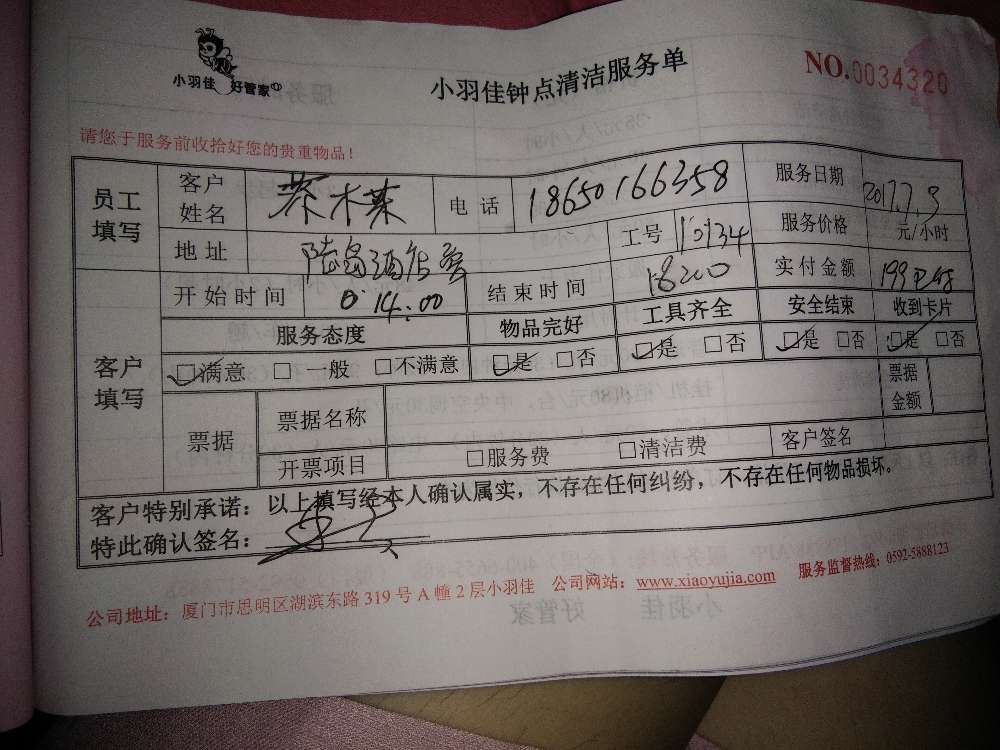 小羽佳 好管家
小羽佳钟点清洁服务单
NO.0034320
请您于服务前收拾好您的贵重物品！
员工填写 客户姓名 电话 18650166358 服务日期 2017.7.3
地址 陆岛酒店 工号 服务价格 元/小时
开始时间 14:00 结束时间 实付金额 199
客户填写 服务态度 物品完好 工具齐全 安全结束 收到卡片
☑满意 □一般 □不满意 ☑是 □否 ☑是 □否 ☑是 □否 ☑是 □否
票据 票据名称 票据金额
开票项目 □服务费 □清洁费 客户签名
客户特别承诺：以上填写经本人确认属实，不存在任何纠纷，不存在任何物品损坏。
特此确认签名：
公司地址：厦门市思明区湖滨东路319号A幢2层小羽佳 公司网站：www.xiaoyujia.com 服务监督热线：0592-5888123